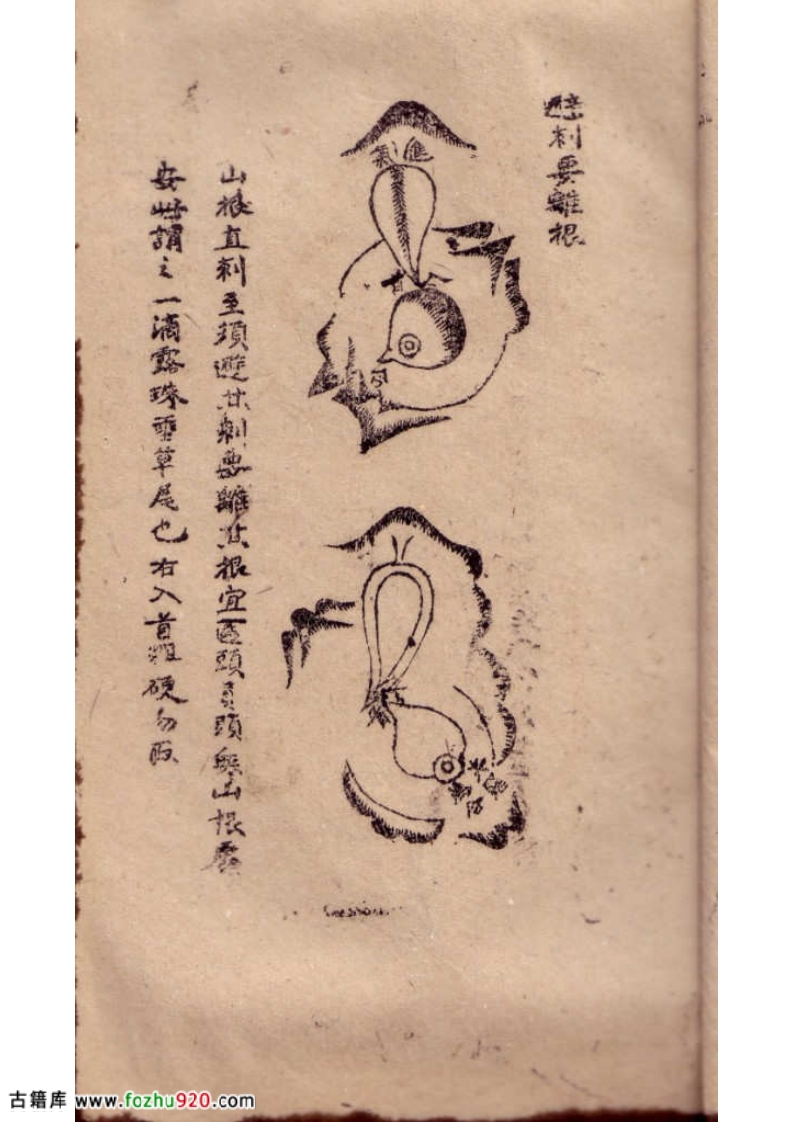 避刺要離根
進氣
山根直刺至須避其刺要離其根宜區頭員頭無山根處
安此謂之一滴露珠垂草尾也右入首粗硬勿取
古籍库 www.fozhu920.com